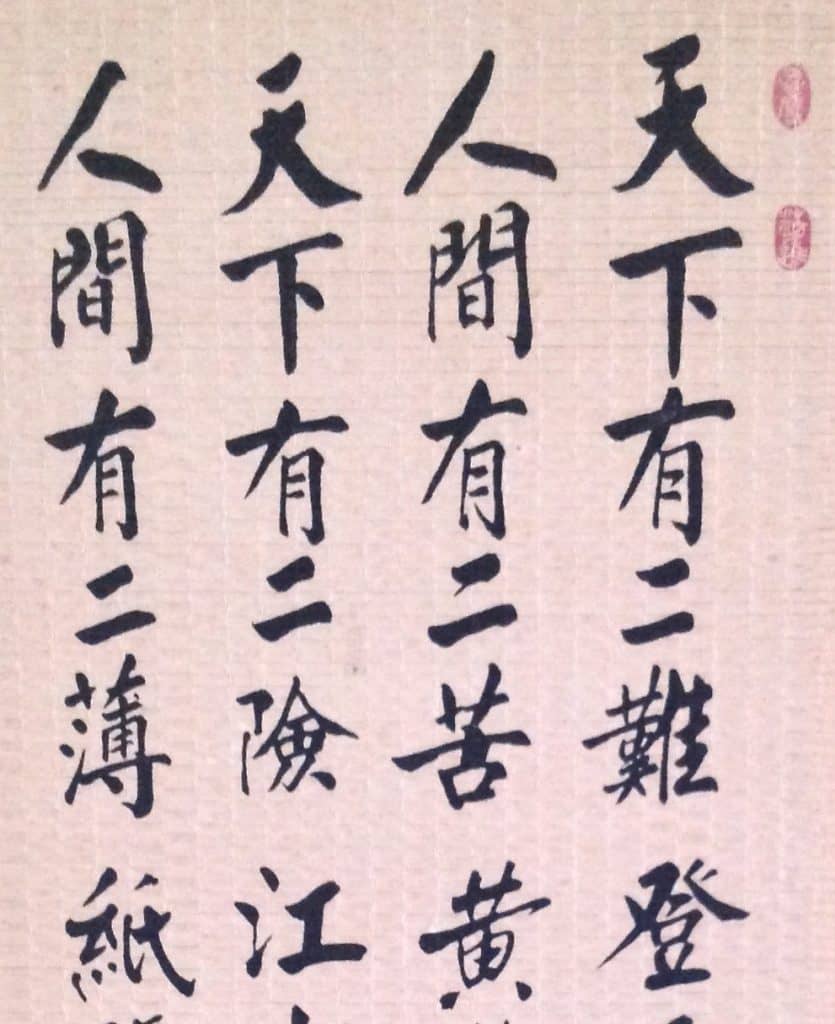 天下有二難登
人間有二苦黄
天下有二險江
人間有二薄紙